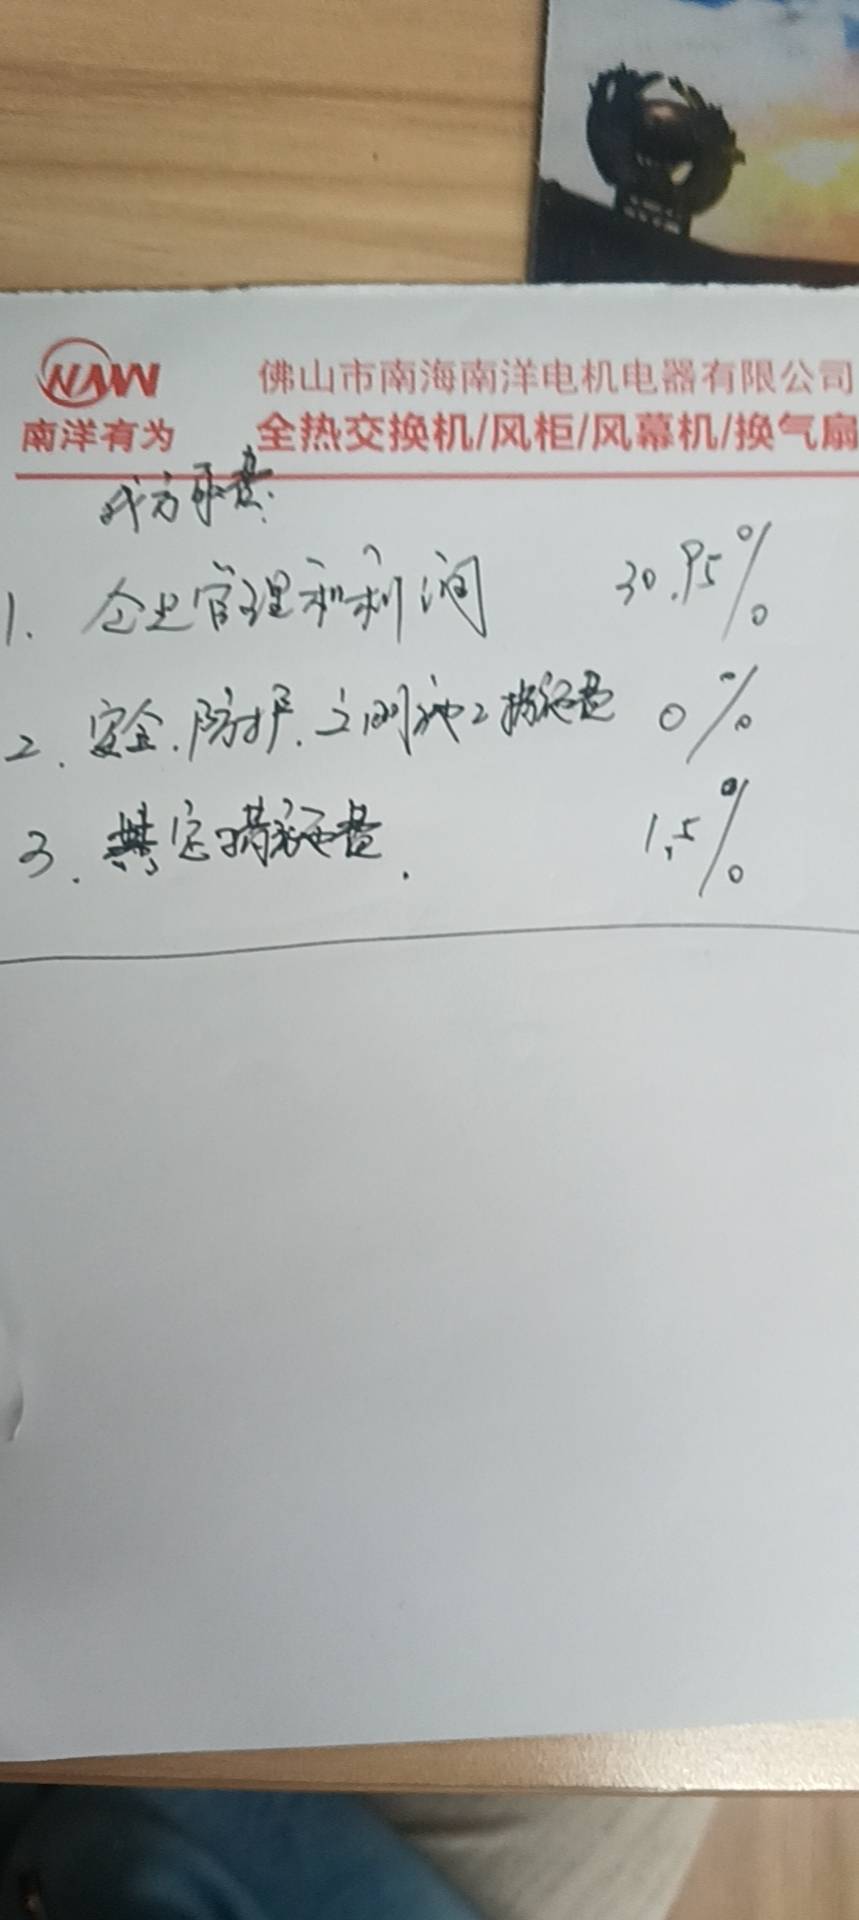 NAW
南洋有为
佛山市南海南洋电机电器有限公司
全热交换机/风柜/风幕机/换气扇
我方取费.
1. 企业管理和利润 30.95%
2. 安全.防护.文明施工措施费 0%
3. 其它措施费. 1.5%